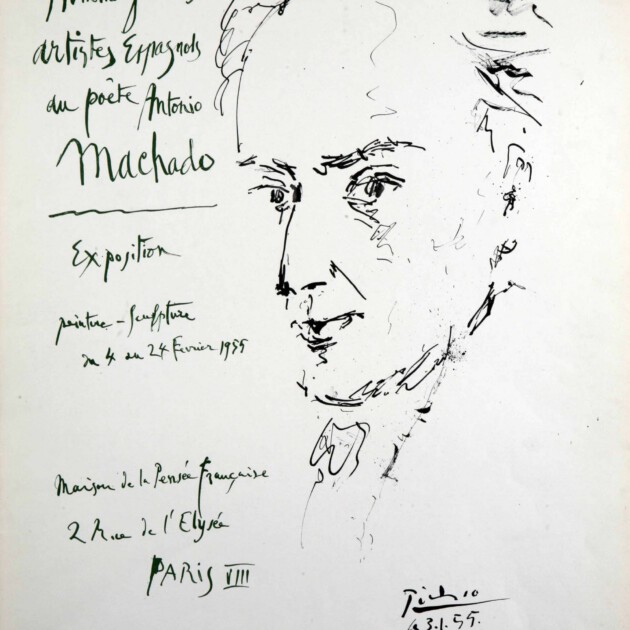 artistes Espagnols
du poète Antonio
Machado
Exposition
peinture - Sculpture
du 4 au 24 Février 1955
Maison de la Pensée Française
2 Rue de l'Elysée
PARIS VIII
Picasso
3.1.55.